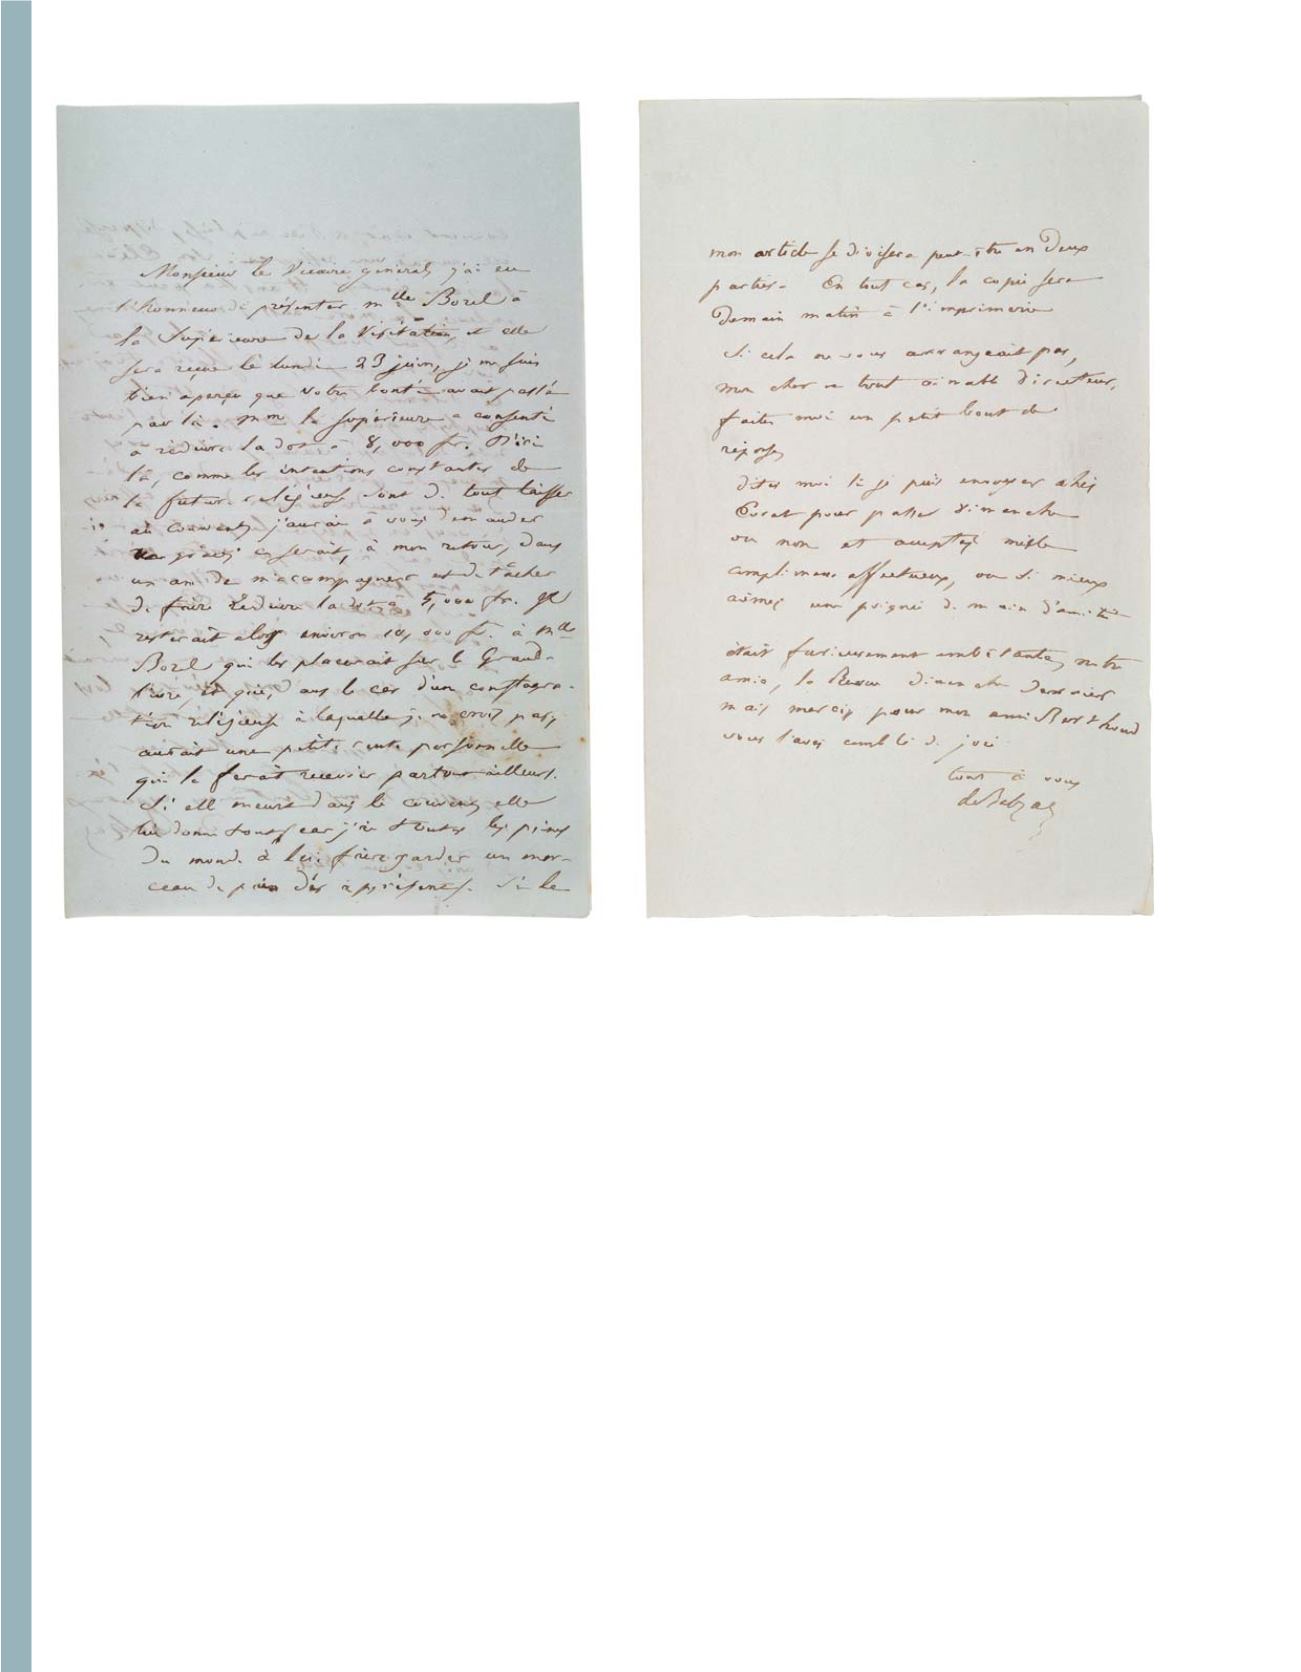 Monsieur le Vicaire général, j'ai eu
l'honneur de présenter Mlle Borel à
la Supérieure de la Visitation, et elle
sera reçue le lundi 23 juin, je me suis
bien aperçu que votre bonté avait passé
par là. Mme la supérieure a consenti
à réduire la dot à 8,000 fr. D'ici
là, comme les intentions constantes de
la future religieuse sont de tout laisser
au couvent, j'aurai à vous demander
grâce, ce serait, à mon retour, dans
un an de m'accompagner et de tâcher
de faire réduire la dot à 5,000 fr. Il
resterait alors environ 10,000 fr. à Mlle
Borel qui les placerait sur le Grand-
livre, et qui, dans le cas d'une conflagra-
tion religieuse à laquelle je ne crois pas,
aurait une petite rente personnelle
qui la ferait recevoir partout ailleurs.
Si elle meurt dans le couvent, elle
lui donne tout, car j'ai toutes les peines
du monde à lui faire garder un mor-
ceau de pain dès à présent. Si le
mon article se divisera peut-être en deux
parties. En tout cas, la copie sera
demain matin à l'imprimerie
Si cela ne vous arrangeait pas,
mon cher et tout aimable directeur,
faites moi un petit bout de
réponse,
dites moi si je puis envoyer chez
pour passer dimanche
ou non et acceptez mille
complimens affectueux, ou si mieux
aimez une poignée de main d'amitié
était furieusement embêtante, notre
amie, la Revue dimanche dernier
mais merci, pour mon ami Berthoud
vous l'avez comblé de joie
tout à vous
de Balzac